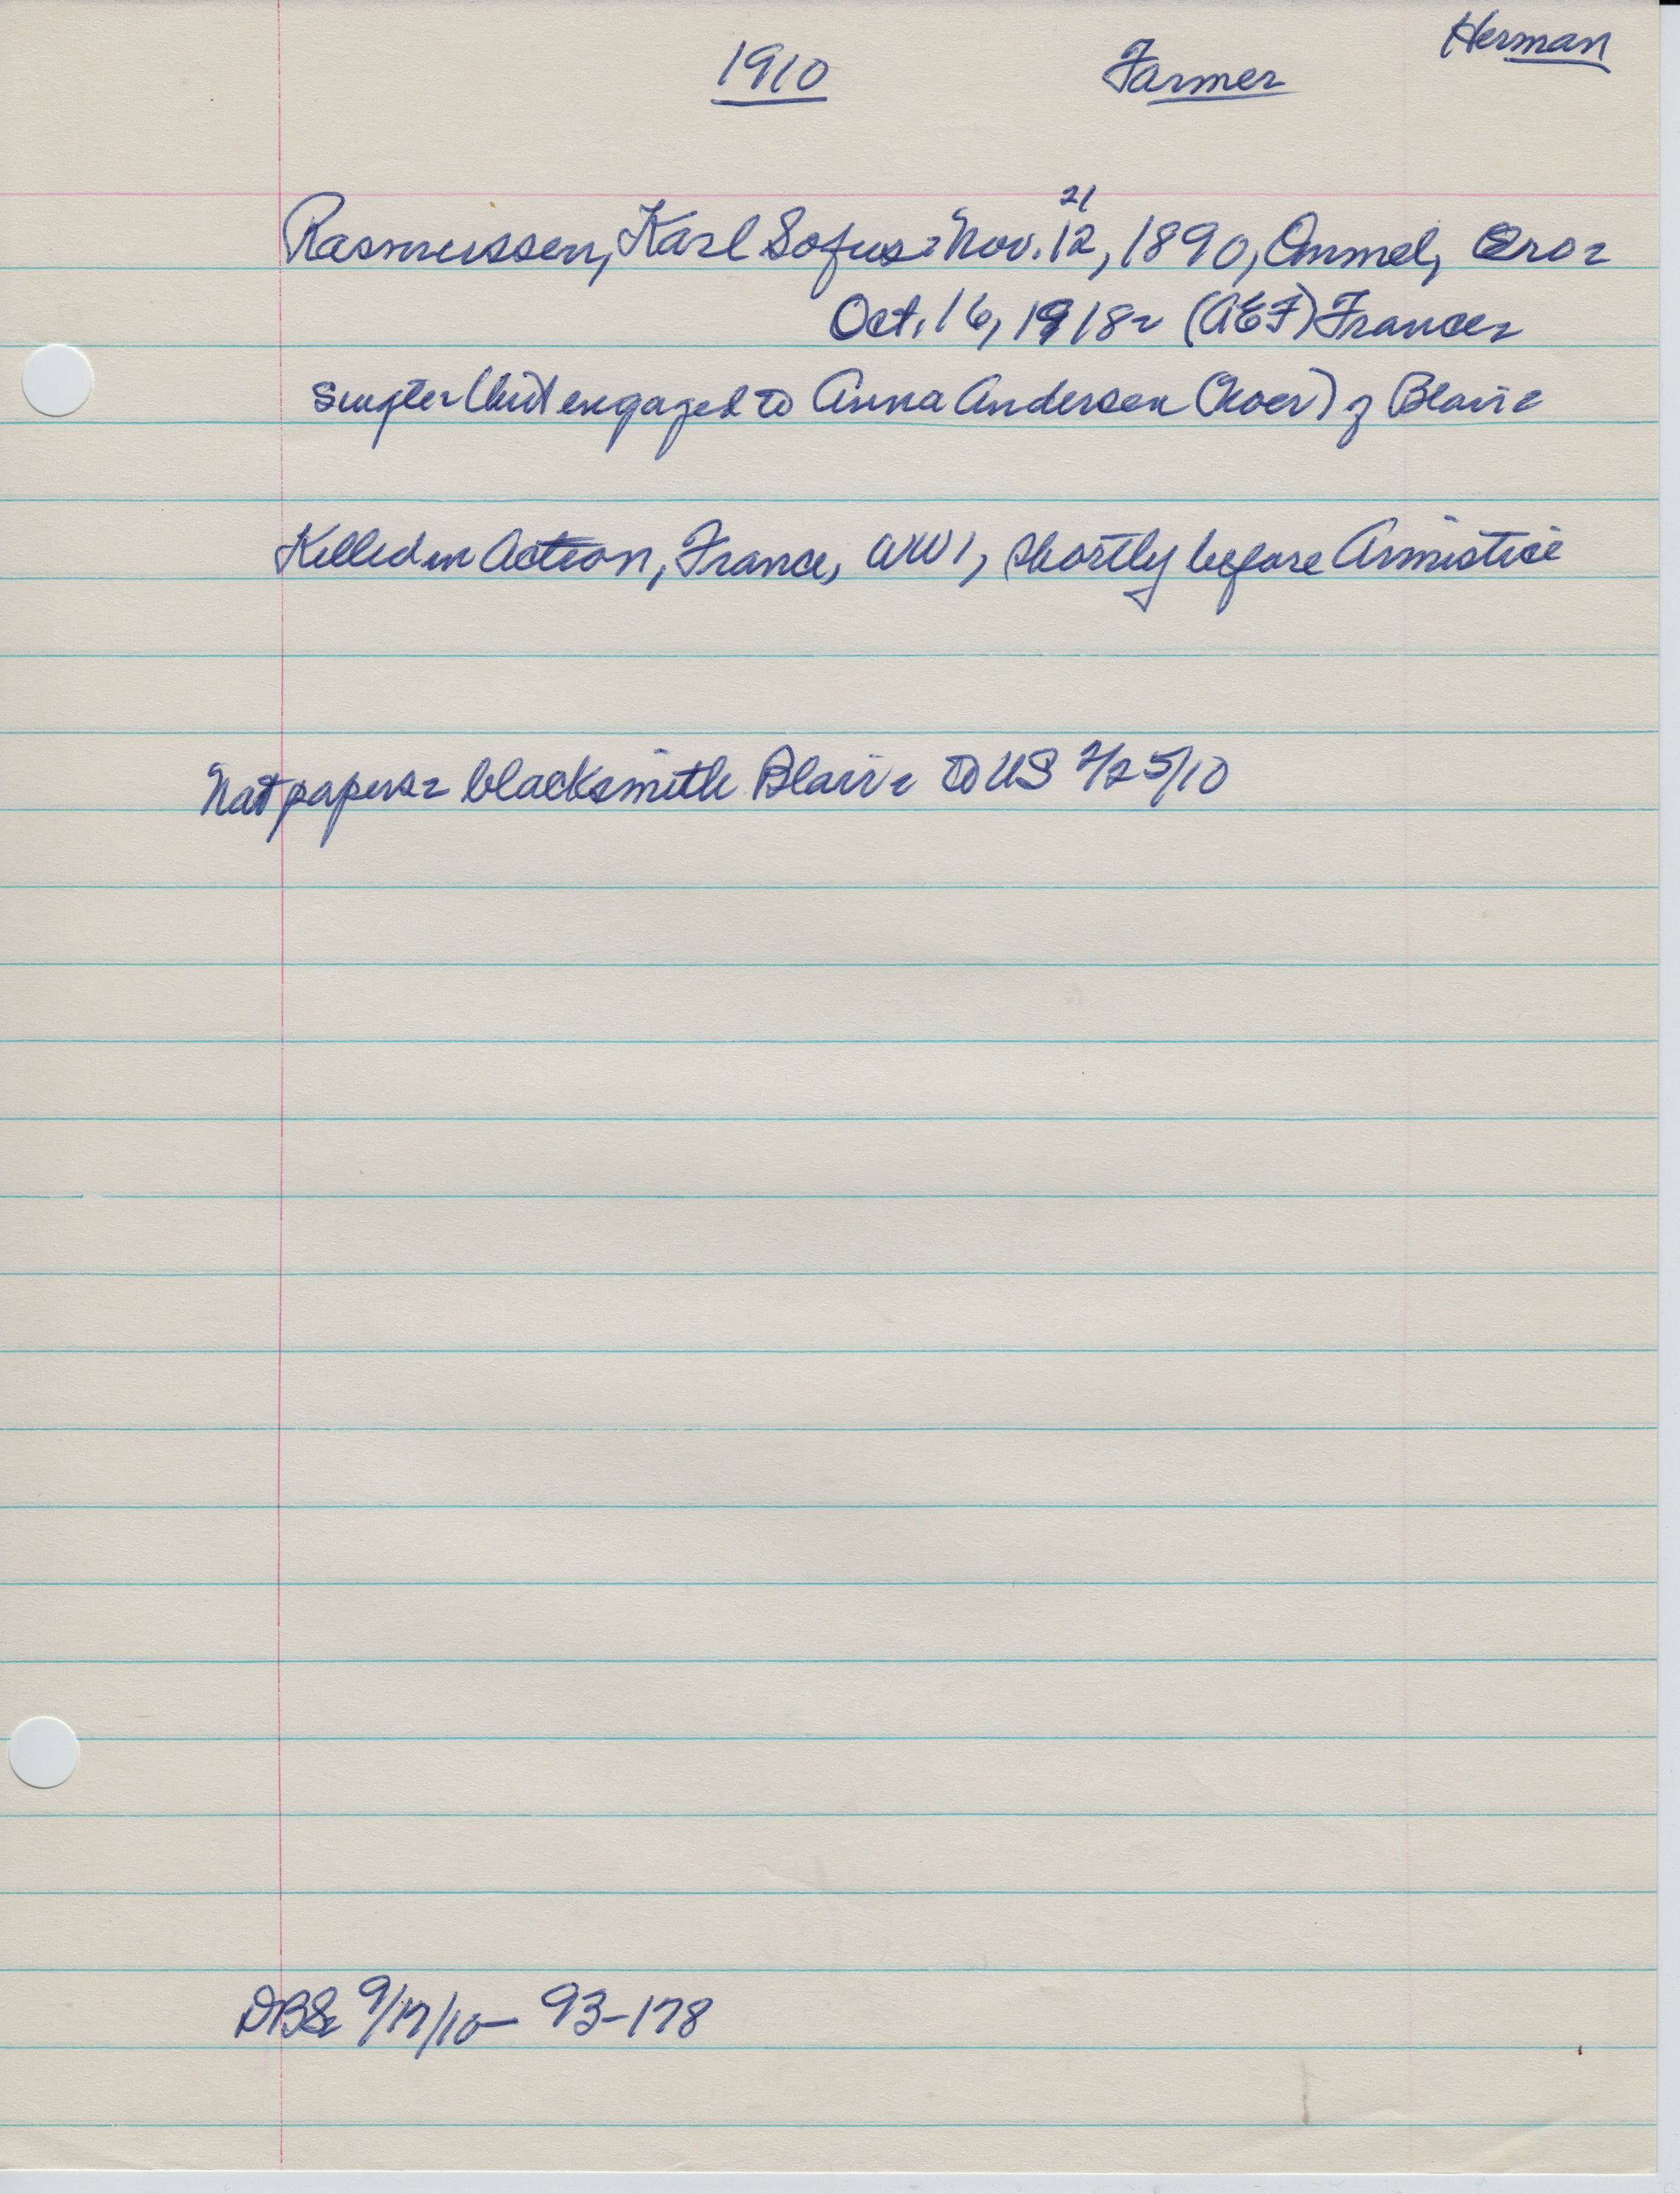 Herman
1910 Farmer
21
Rasmussen, Karl Sofus - Nov. 12, 1890, Ommel, Ero -
Oct. 16, 1918 - (AEF) France -
single - (but engaged to Anna Andersen ) of Blair -
Killed in Action, France, WW1, shortly before Armistice
Nat papers - blacksmith Blair - to US 2/25/10
9/17/10 - 93-178